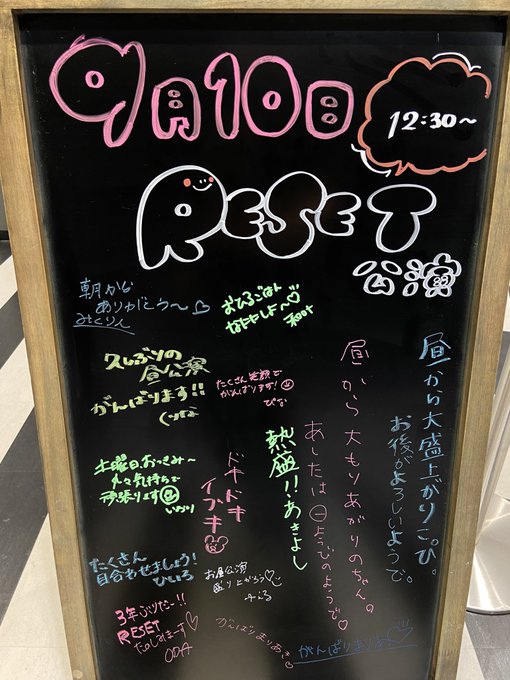 9月10日
12:30〜
RESET
公演
朝から
ありがとう〜♡
みくりん
おひるごはん
なににしよ♡
久しぶりの
昼公演
がんばります!!
たくさん笑顔で
がんばります!
ぴな
昼から大盛上がりこっぴ。
お後がよろしいようで。
昼から大もりあがりのちゃん。
あしたは日ようびのようで♡
熱盛!!あきよし
ドキドキ
イブキ
土曜日おっきみ〜
気持ちで
頑張ります
たくさん
目合わせましょう!
ひいろ
お昼公演
盛り上がろう♡
3年ぶりだー!!
RESET
たのしみまーす♡
ODA
がんばりまりあ
がんばりまりあ♡